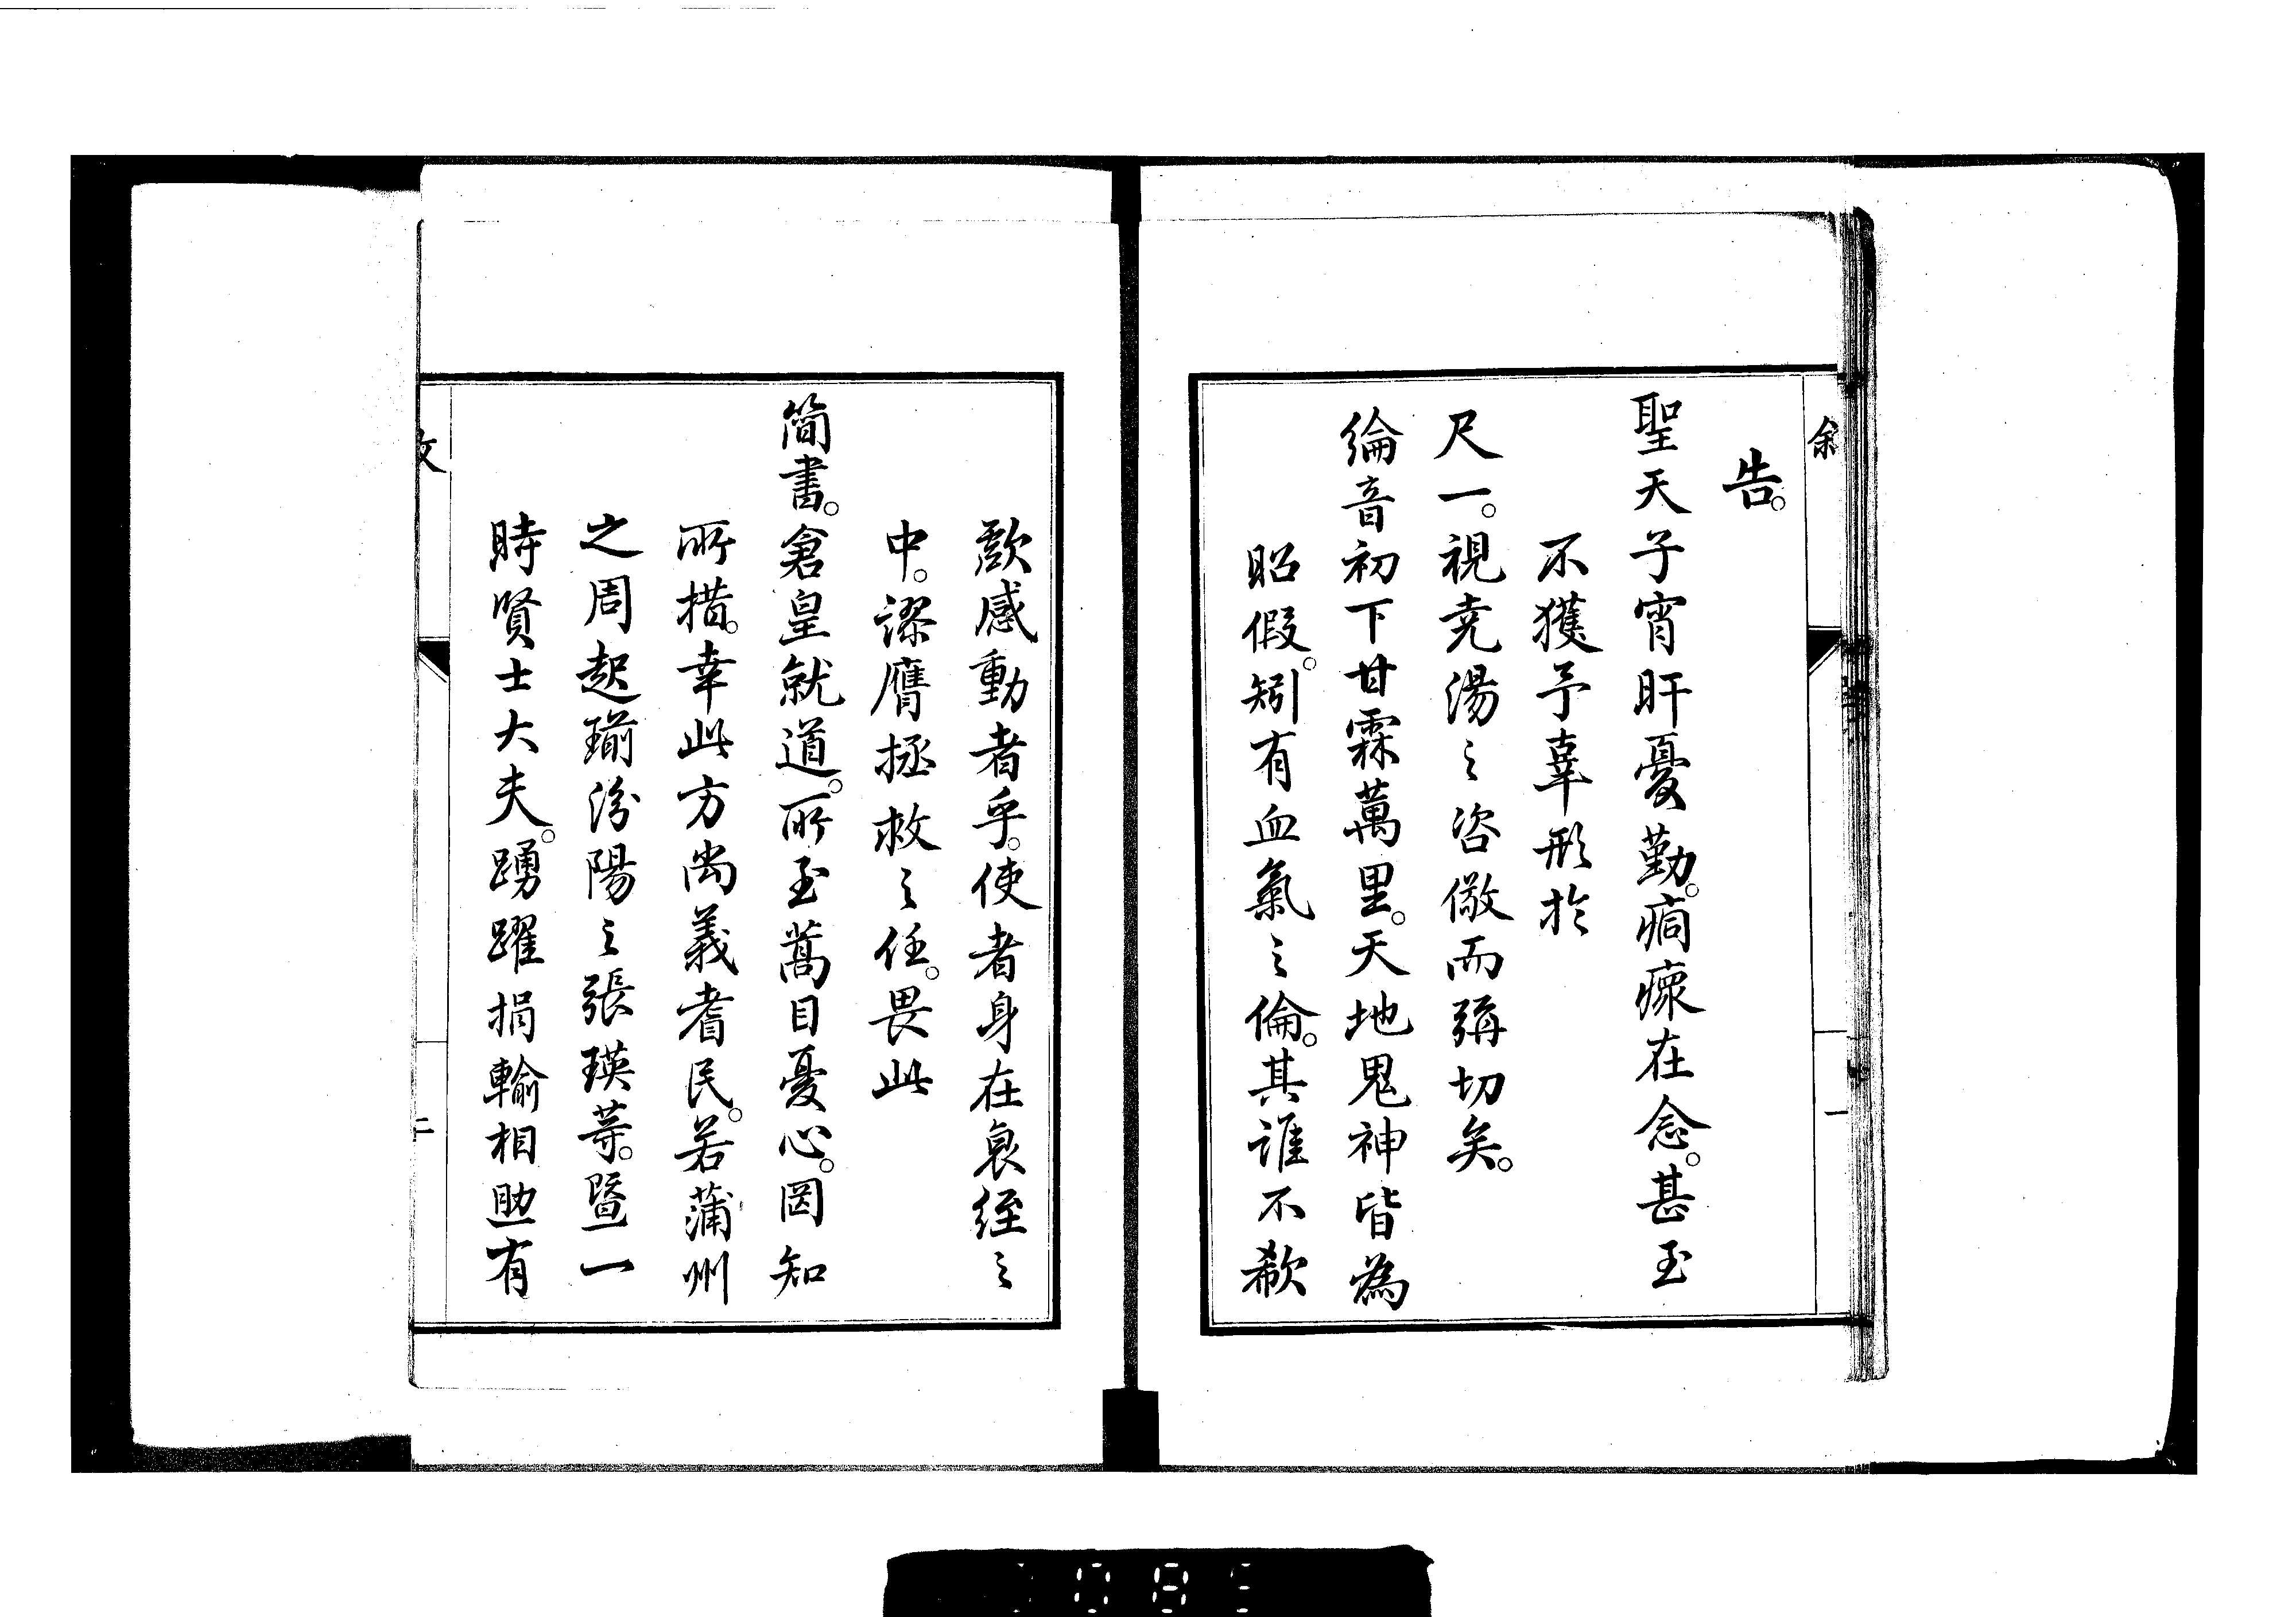 叙
一
告。
聖天子宵旰憂勤。痌瘝在念。甚至
不獲予辜形於
尺一。視堯湯之咨儆而彌切矣。
綸音初下甘霖萬里。天地鬼神皆為
昭假。矧有血氣之倫。其誰不欷
歔感動者乎。使者身在衰絰之
中。謬膺拯救之任。畏此
簡書。倉皇就道。所至蒿目憂心。罔知
所措。幸此方尚義耆民。若蒲州
之周起瑜汾陽之張瑛等。暨一
時賢士大夫。踴躍捐輸相助有
二